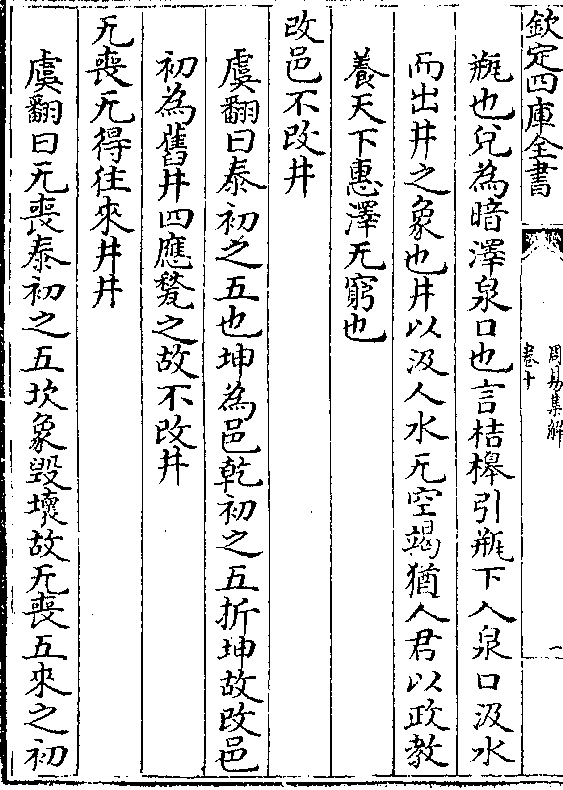 欽定四庫全書
周易集解
卷十
一
瓶也兌為暗澤泉口也言桔橰引瓶下入泉口汲水
而出井之象也井以汲人水无空竭猶人君以政教
養天下惠澤无窮也
改邑不改井
虞翻曰泰初之五也坤為邑乾初之五折坤故改邑
初為舊井四應甃之故不改井
无喪无得往來井井
虞翻曰无喪泰初之五坎象毀壞故无喪五來之初